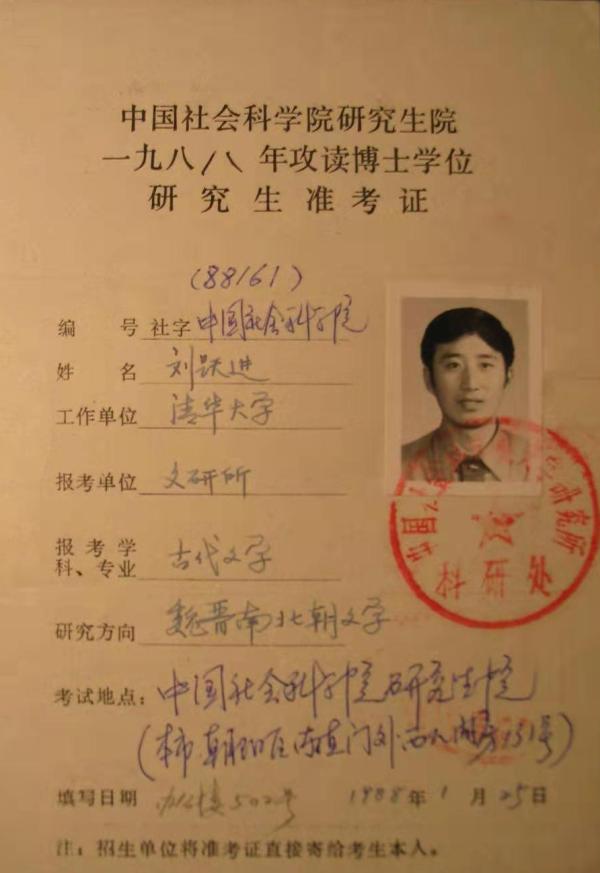 中国社会科学院研究生院
一九八/八年攻读博士学位
研究生准考证
(88161)
编 号 社字 中国社会科学院
姓 名 刘跃进
工作单位 清华大学
报考单位 文研所
报考学
科、专业 古代文学
研究方向 魏晋南北朝文学
考试地点: 中国社会科学院研究生院
(本市朝阳区 直门外西八间房 号)
填写日期 办公楼502号 1988年1月25日
注:招生单位将准考证直接寄给考生本人。
中国 研究所
科研处